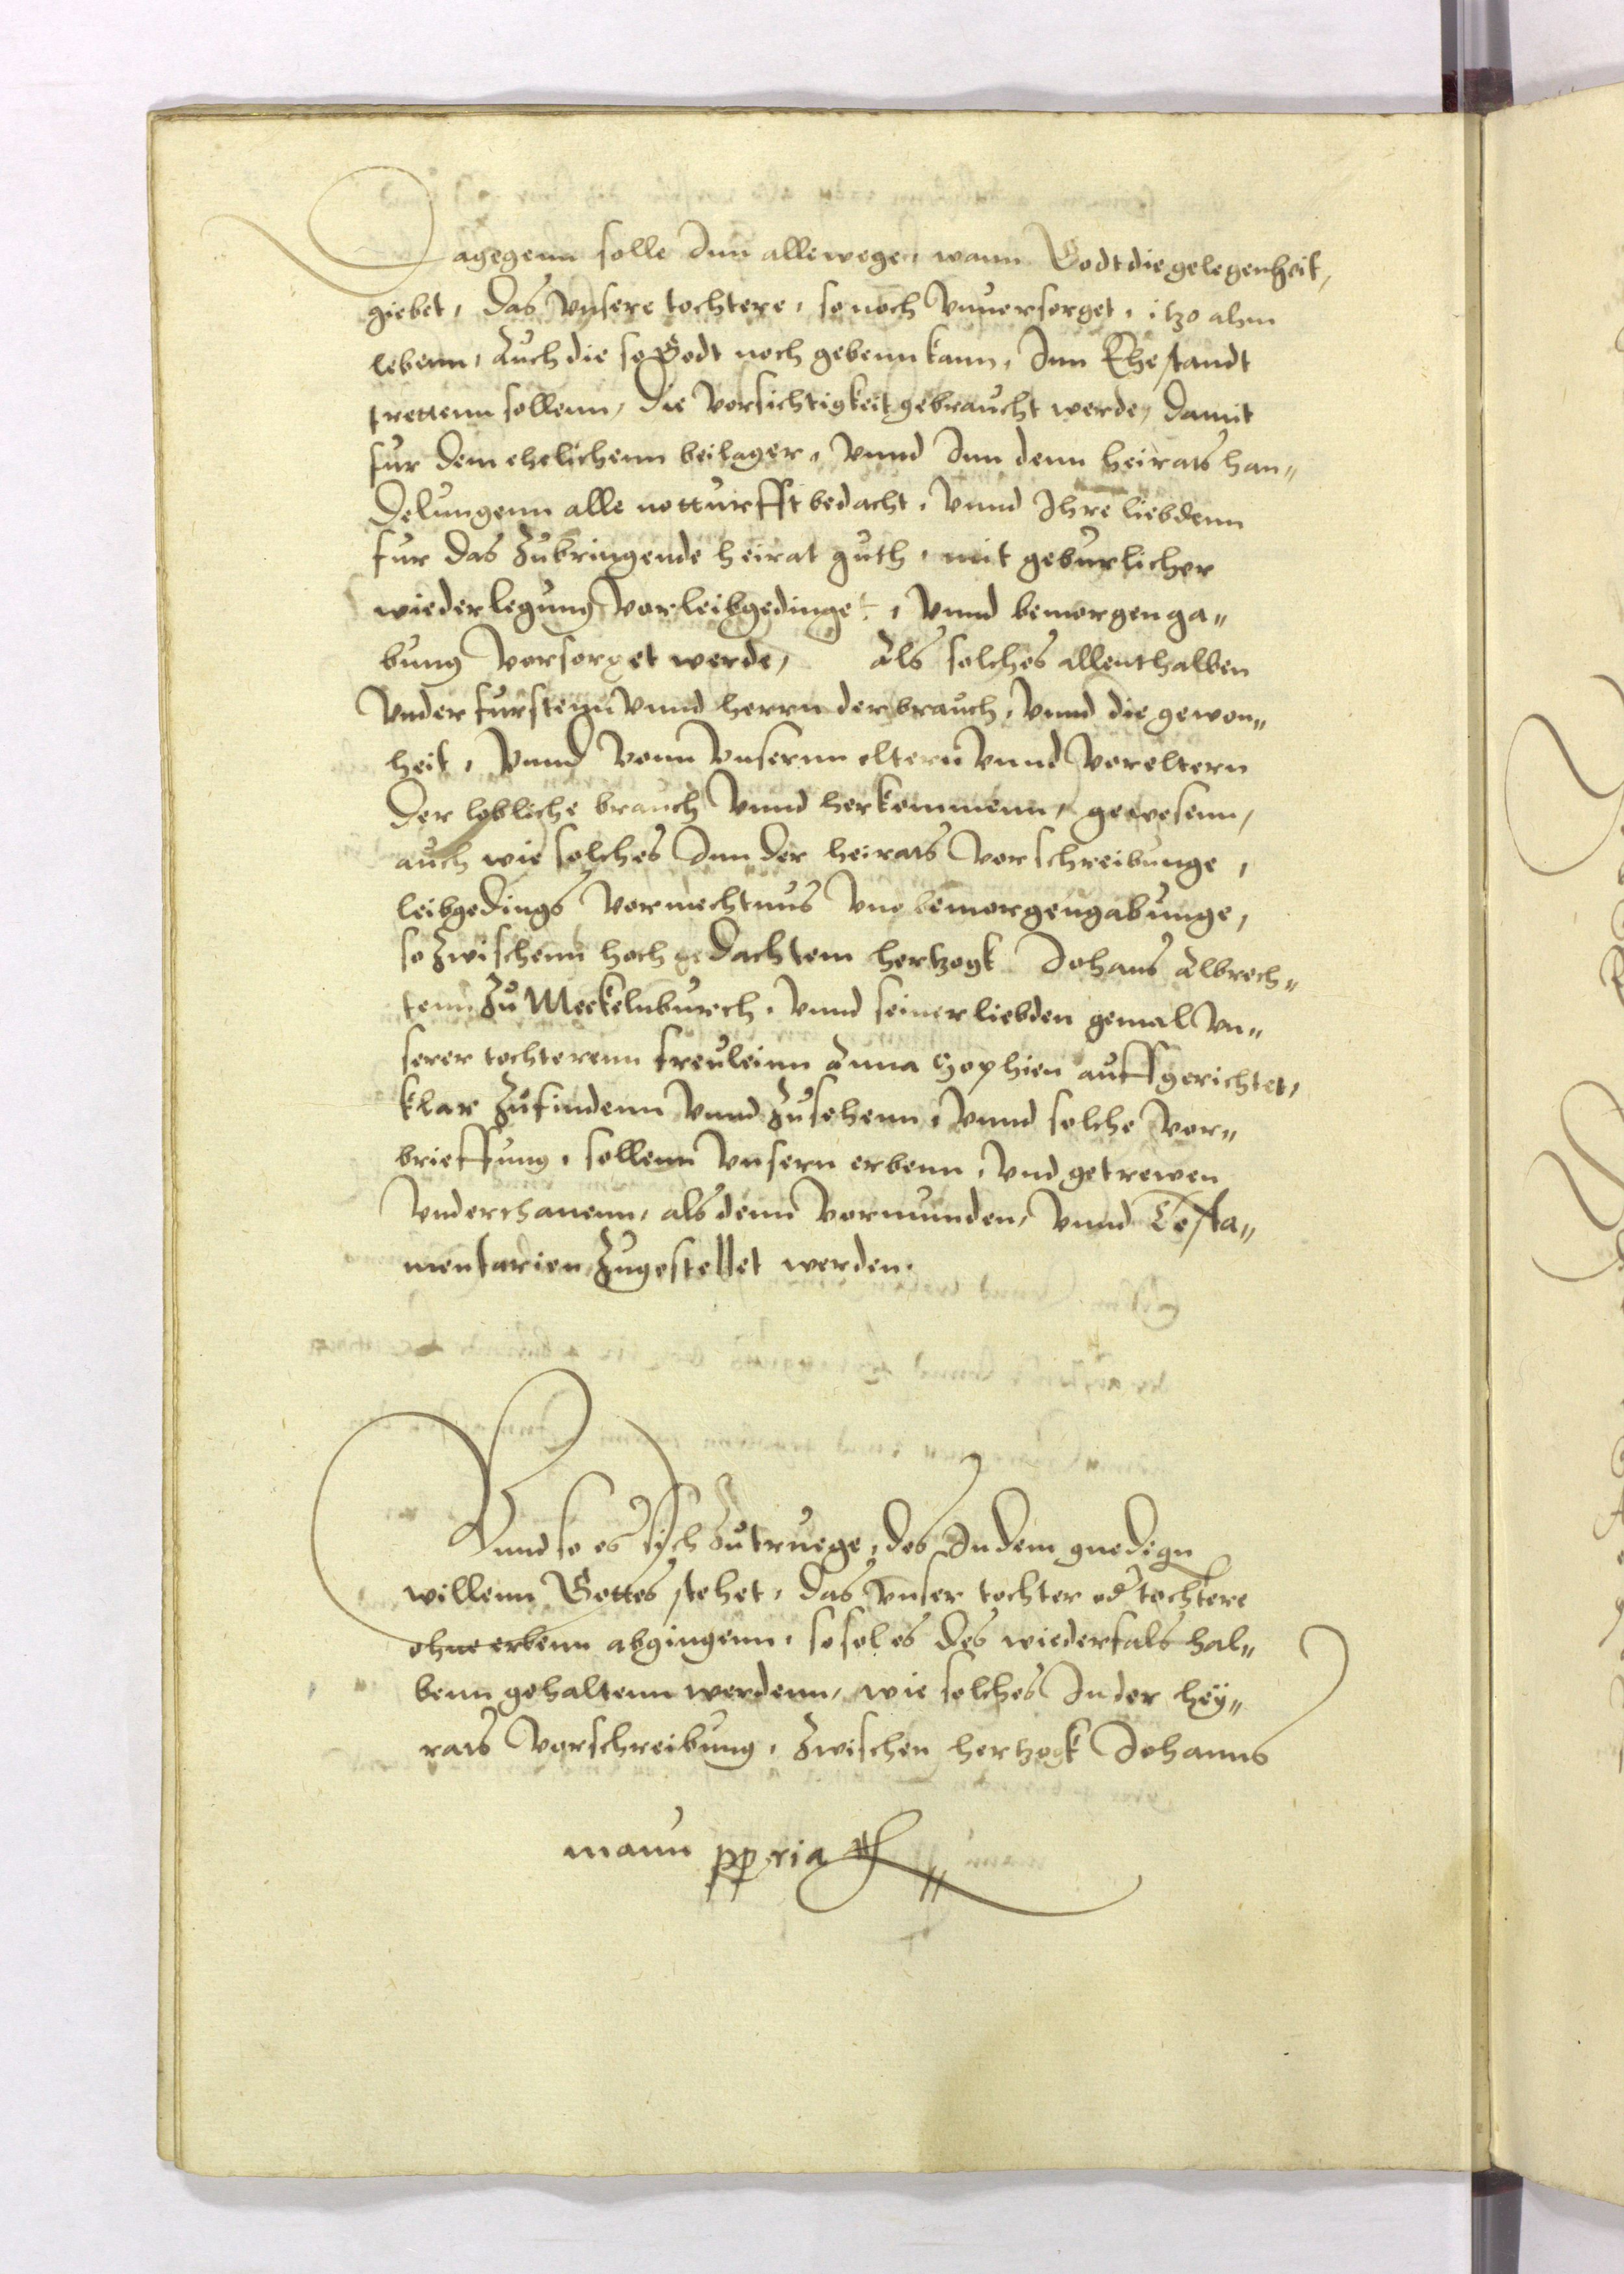 Dagegenn solle Inn allewege, wann Godt die gelegenheit,
giebet, das vnsere tochtere, so noch vnuersorget, itzo ahm
lebenn, Auch die so Godt noch gebenn kann, Inn Ehestandt
trettenn sollenn, die vorsichtigkeit gebraucht werde, damit
fur dem ehelichenn beilager, vnnd Inn denn heirats han„
delungenn alle notturfft bedacht, vnnd Ihre liebdenn
fur das Zubringende heirat guth, mit geburlicher
wiederlegung vorleibgedinget, vnnd bemorgenga„
bung vorsorget werde, Als solches allenthalben
vnder furstenn vnnd herrn der brauch, vnnd die gewon„
heit, vnnd vonn vnsernn eltern vnnd voreltern
der lobliche brauch vnnd herkommenn, gewesenn,
auch wie solches Inn der heirats vorschreibunge,
leibgedings vormechtnus vnd bemorgengabunge,
so Zwischenn hochgedachtem hertzogk Johans Albrech„
tenn Zu Meckelnburch, vnnd seiner liebden gemal vn„
serer tochterenn freuleinn Anna Sophien auffgerichtet,
klar Zufindenn vnnd Zusehenn, vnnd solche vor„
brieffung, sollenn vnsern erbenn, vnd getrewen
vnderthanenn, als denn vormunden, vnnd Testa„
mentarien Zugestellet werden.
Vnnd so es sich Zutruege, des In dem gnedign
willenn Gottes stehet, das vnser tochter od tochtere
ohne erbenn abgingenn, so sol es des wiederfals hal„
benn gehaltenn werdenn, wie solches In der hey„
rats vorschreibung, Zwischen hertzogk Johanns
manu ppria